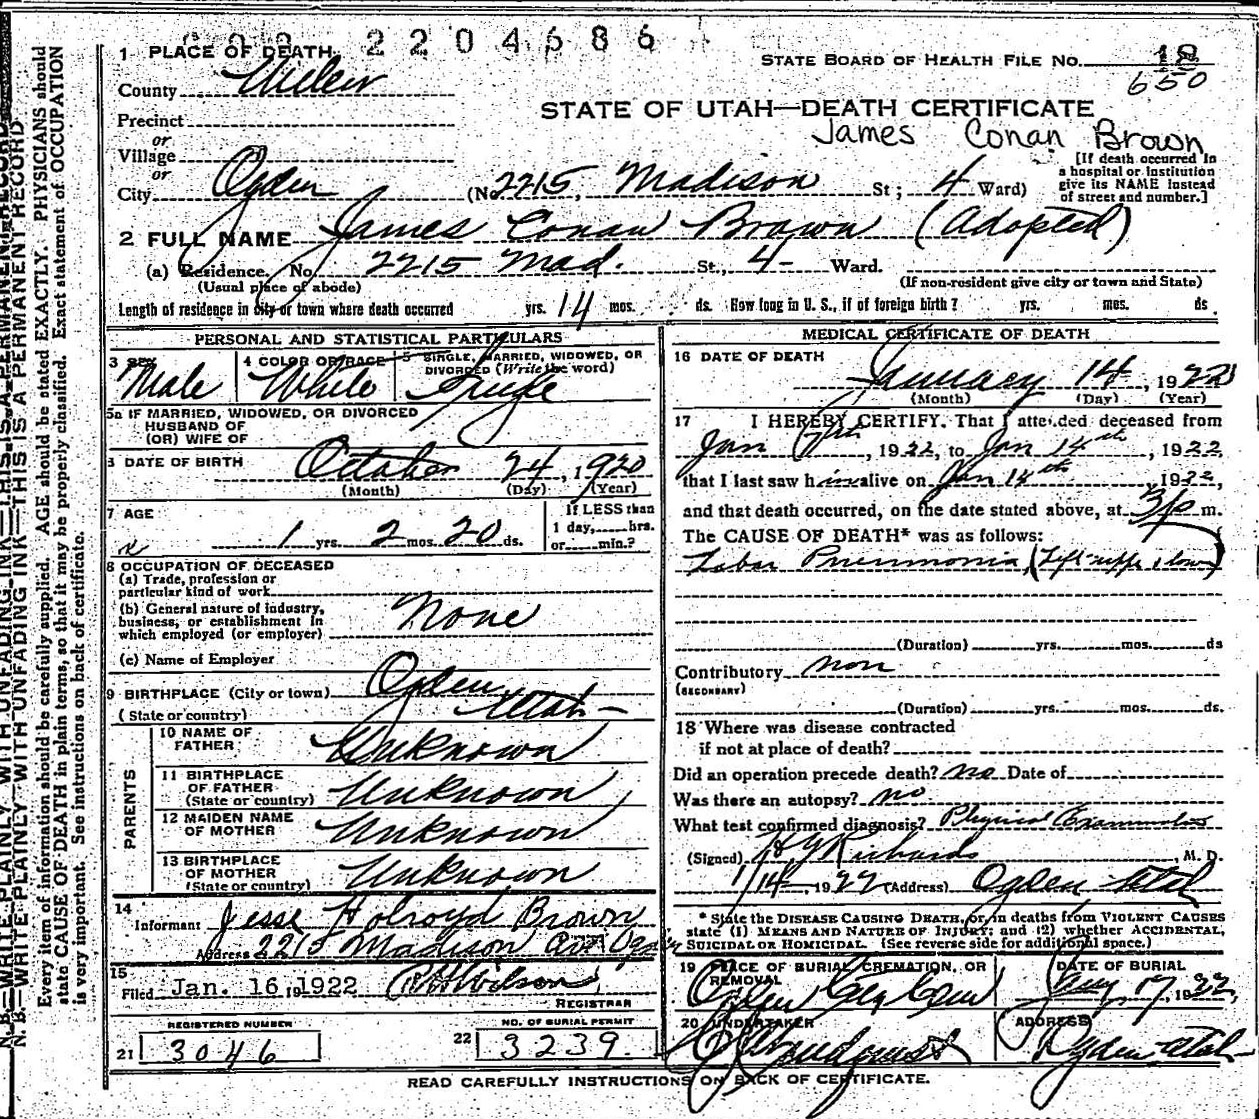 2204686
1 PLACE OF DEATH
STATE BOARD OF HEALTH FILE NO. 18
650
County
STATE OF UTAH—DEATH CERTIFICATE
James Conan Brown
Precinct
or
Village
or
City Ogden (No. 2215, Madison St; 4 Ward)
[If death occurred in
a hospital or institution
give its NAME instead
of street and number.]
2 FULL NAME James Conan Brown (Adopted)
(a) Residence. No. 2215 Mad. St., 4- Ward.
(Usual place of abode) (If non-resident give city or town and State)
Length of residence in city or town where death occurred yrs. 14 mos. ds. How long in U. S., if of foreign birth? yrs. mos. ds
PERSONAL AND STATISTICAL PARTICULARS
3 SEX Male
4 COLOR OR RACE White
5 SINGLE, MARRIED, WIDOWED, OR
DIVORCED (Write the word) Single
5a IF MARRIED, WIDOWED, OR DIVORCED
HUSBAND OF
(OR) WIFE OF
DATE OF BIRTH October 24, 1920
(Month) (Day) (Year)
7 AGE
1 yrs. 2 mos. 20 ds.
If LESS than
1 day, hrs.
or min.?
8 OCCUPATION OF DECEASED
(a) Trade, profession or
particular kind of work
(b) General nature of industry,
business, or establishment in
which employed (or employer) None
(c) Name of Employer
9 BIRTHPLACE (City or town) Ogden
(State or country) Utah
PARENTS
10 NAME OF
FATHER Unknown
11 BIRTHPLACE
OF FATHER
(State or country) Unknown
12 MAIDEN NAME
OF MOTHER Unknown
13 BIRTHPLACE
OF MOTHER
(State or country) Unknown
14
Informant Jesse Holroyd Brown
Address 2215 Madison Ave Ogden
15
Filed Jan. 16, 1922 Wilson
REGISTRAR
REGISTERED NUMBER
21 3046
NO. OF BURIAL PERMIT
22 3239
MEDICAL CERTIFICATE OF DEATH
16 DATE OF DEATH
January 14, 1922
(Month) (Day) (Year)
17 I HEREBY CERTIFY, That I attended deceased from
Jan 7th, 1922, to Jan 14th, 1922,
that I last saw him alive on Jan 14th, 1922,
and that death occurred, on the date stated above, at 3 p m.
The CAUSE OF DEATH* was as follows:
Lobar Pneumonia (Left upper & lower)
(Duration) yrs. mos. ds
Contributory non
(SECONDARY)
(Duration) yrs. mos. ds.
18 Where was disease contracted
if not at place of death?
Did an operation precede death? no Date of
Was there an autopsy? no
What test confirmed diagnosis? Physical Examination
(Signed) Richards, M. D.
1/14 1922 (Address) Ogden Utah
* State the DISEASE CAUSING DEATH, or, in deaths from VIOLENT CAUSES
state (1) MEANS AND NATURE OF INJURY; and (2) whether ACCIDENTAL,
SUICIDAL OR HOMICIDAL. (See reverse side for additional space.)
19 PLACE OF BURIAL, CREMATION, OR
REMOVAL
Ogden City Cem
DATE OF BURIAL
Jany 17, 1922,
20 UNDERTAKER
ADDRESS
Ogden Utah
READ CAREFULLY INSTRUCTIONS ON BACK OF CERTIFICATE.
N. B.—WRITE PLAINLY WITH UNFADING INK—THIS IS A PERMANENT RECORD
Every item of information should be carefully supplied. AGE should be stated EXACTLY. PHYSICIANS should
state CAUSE OF DEATH in plain terms, so that it may be properly classified. Exact statement of OCCUPATION
is very important. See instructions on back of certificate.